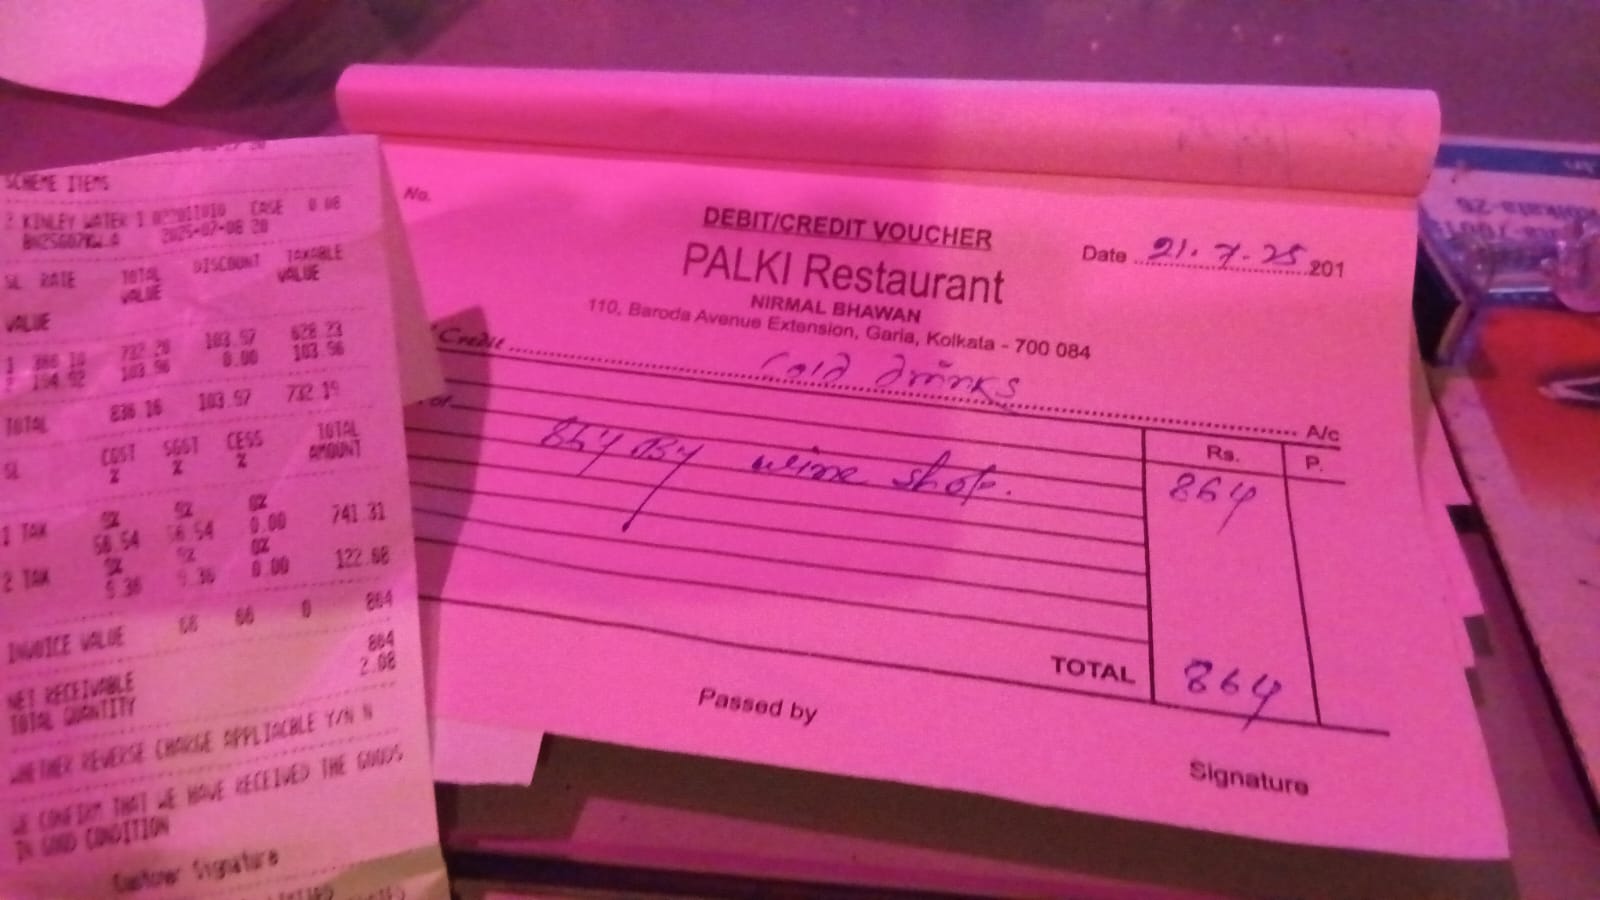 SCHEME ITEMS
KINLEY WATER 1 CASE 0.08
2025-07-08 20
SL RATE TOTAL VALUE DISCOUNT TAXABLE VALUE
VALUE
1 366.10 732.20 103.97 628.23
103.96 0.00 103.96
TOTAL 836.16 103.97 732.19
SL CGST % SGST % CESS % TOTAL AMOUNT
1 TAX 9% 9% 0%
56.54 56.54 0.00 741.31
2 TAX 9% 9% 0%
9.36 9.36 0.00 122.68
INVOICE VALUE 66 66 0 864
NET RECEIVABLE 864
TOTAL QUANTITY 2.08
WHETHER REVERSE CHARGE APPLIACBLE Y/N N
WE CONFIRM THAT WE HAVE RECEIVED THE GOODS
IN GOOD CONDITION
Customer Signature
No.
DEBIT/CREDIT VOUCHER
Date 21.7.25 201
PALKI Restaurant
NIRMAL BHAWAN
110, Baroda Avenue Extension, Garia, Kolkata - 700 084
Credit Cold drinks A/c
Rs. P.
wine shop. 864
TOTAL 864
Passed by
Signature